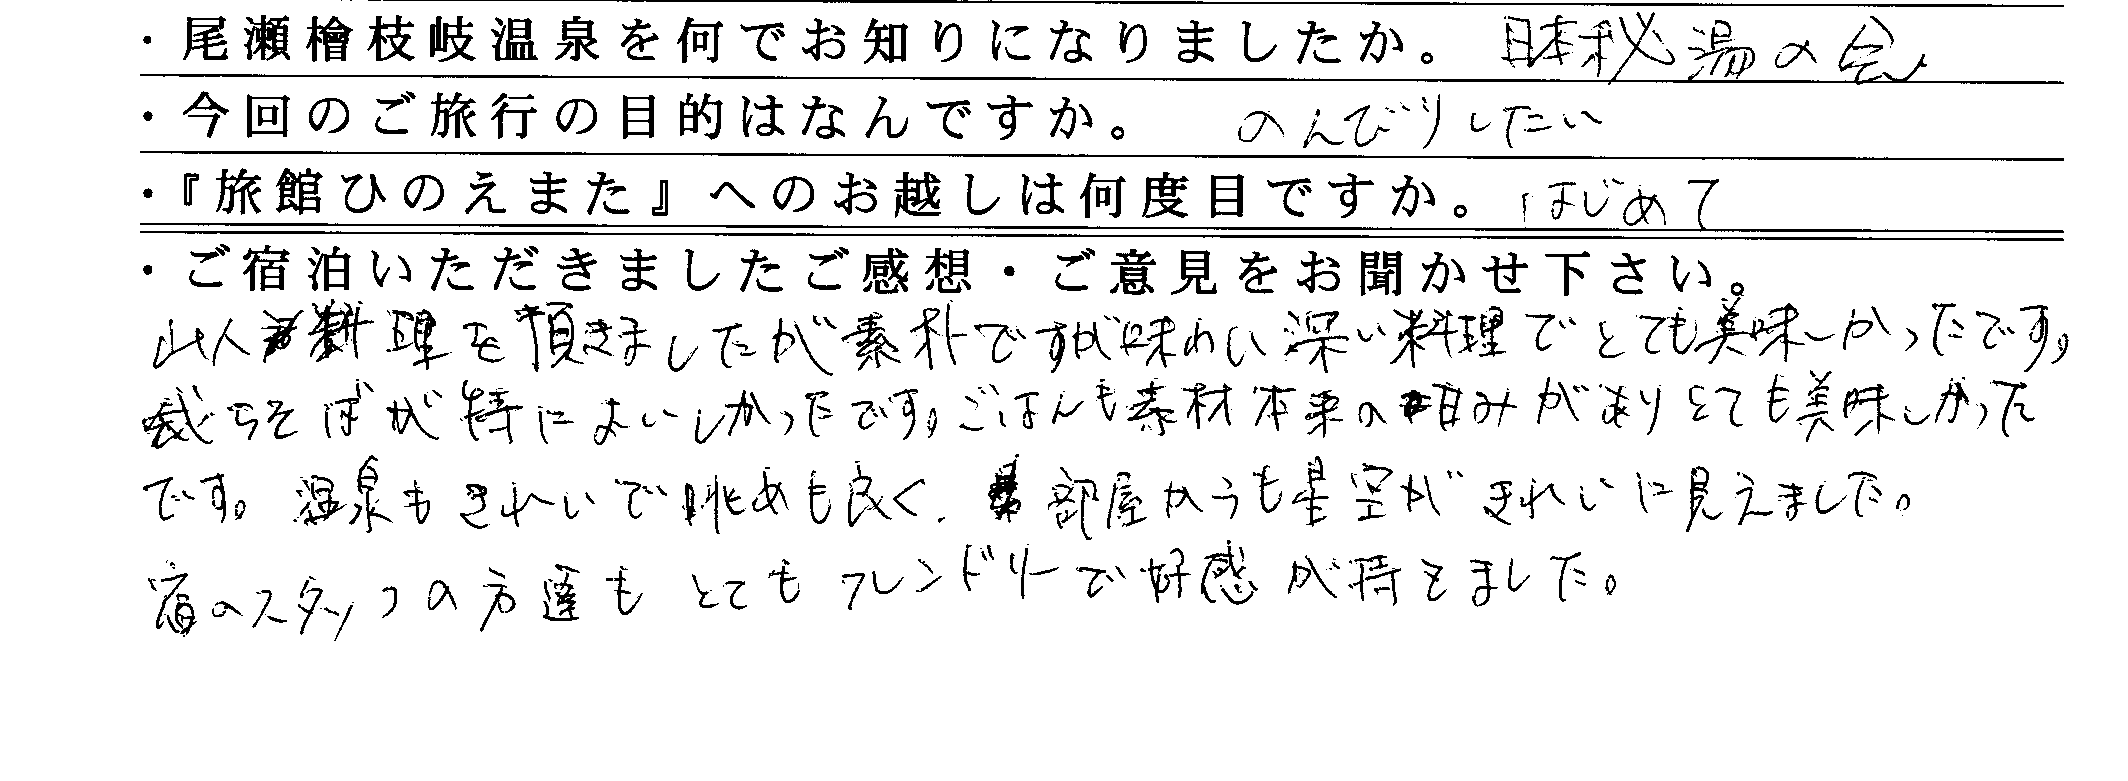 ・尾瀬檜枝岐温泉を何でお知りになりましたか。 日本秘湯の会
・今回のご旅行の目的はなんですか。 のんびりしたい
・『旅館ひのえまた』へのお越しは何度目ですか。 はじめて
・ご宿泊いただきましたご感想・ご意見をお聞かせ下さい。
山人料理を頂きましたが素朴ですが味わい深い料理でとても美味しかったです。
裁ちそばが特においしかったです。ごはんも素材本来の甘みがありとても美味しかった
です。温泉もきれいで眺めも良く、部屋からも星空がきれいに見えました。
宿のスタッフの方達もとてもフレンドリーで好感が持てました。